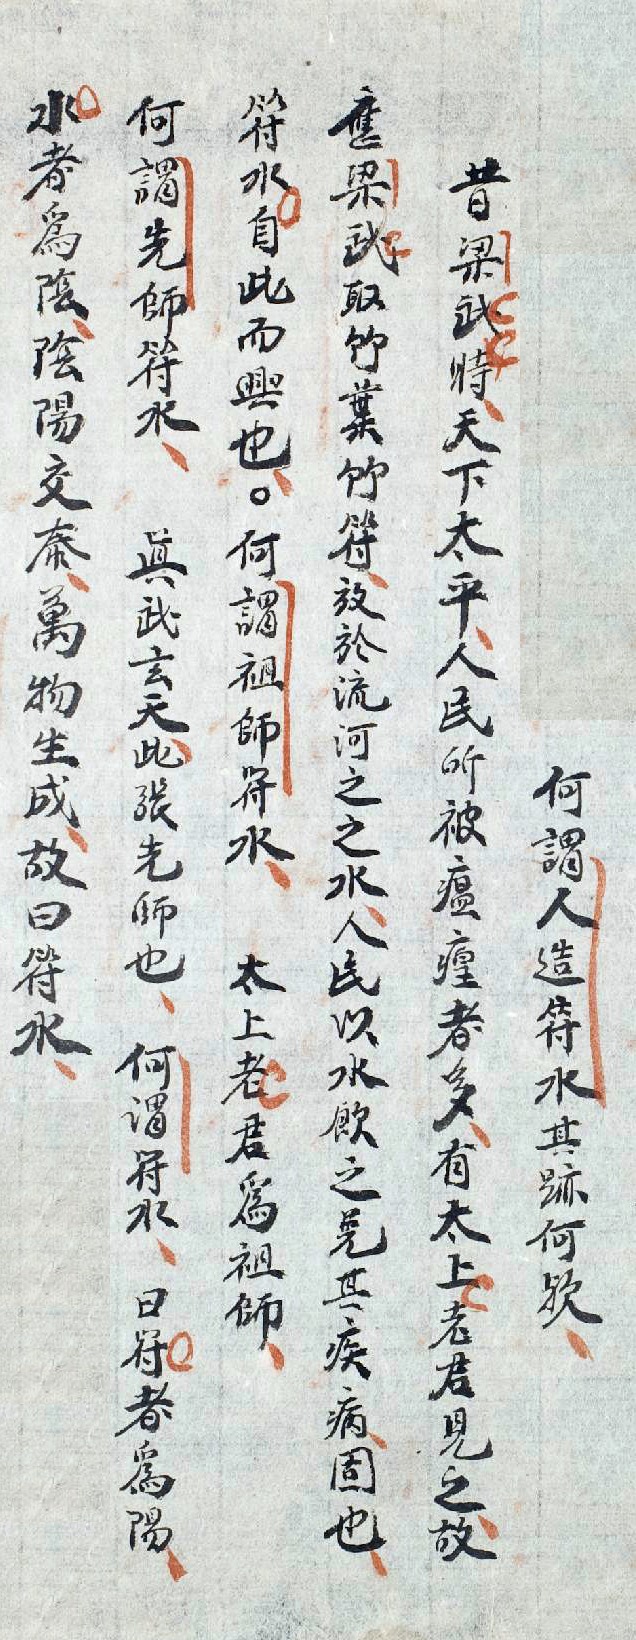 何謂人造符水其跡何欤
昔梁武時天下太平人民所被瘟瘴者多有太上老君見之故
應梁武取竹葉竹符放於流河之之水人民以水飲之免其疾病固也
符水自此而興也。何謂祖師符水 太上老君爲祖師
何謂先師符水 眞武玄天此張先師也 何谓符水 曰符者爲陽
水者爲陰陰陽交泰萬物生成故曰符水